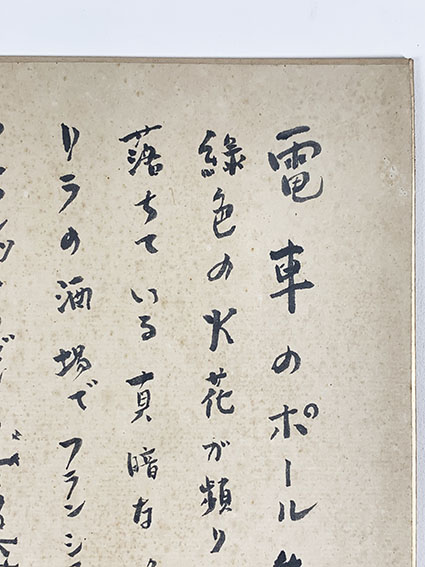 電車のポール
綠色の火花が頻り
落ちている真暗な
リラの酒場でフランシ